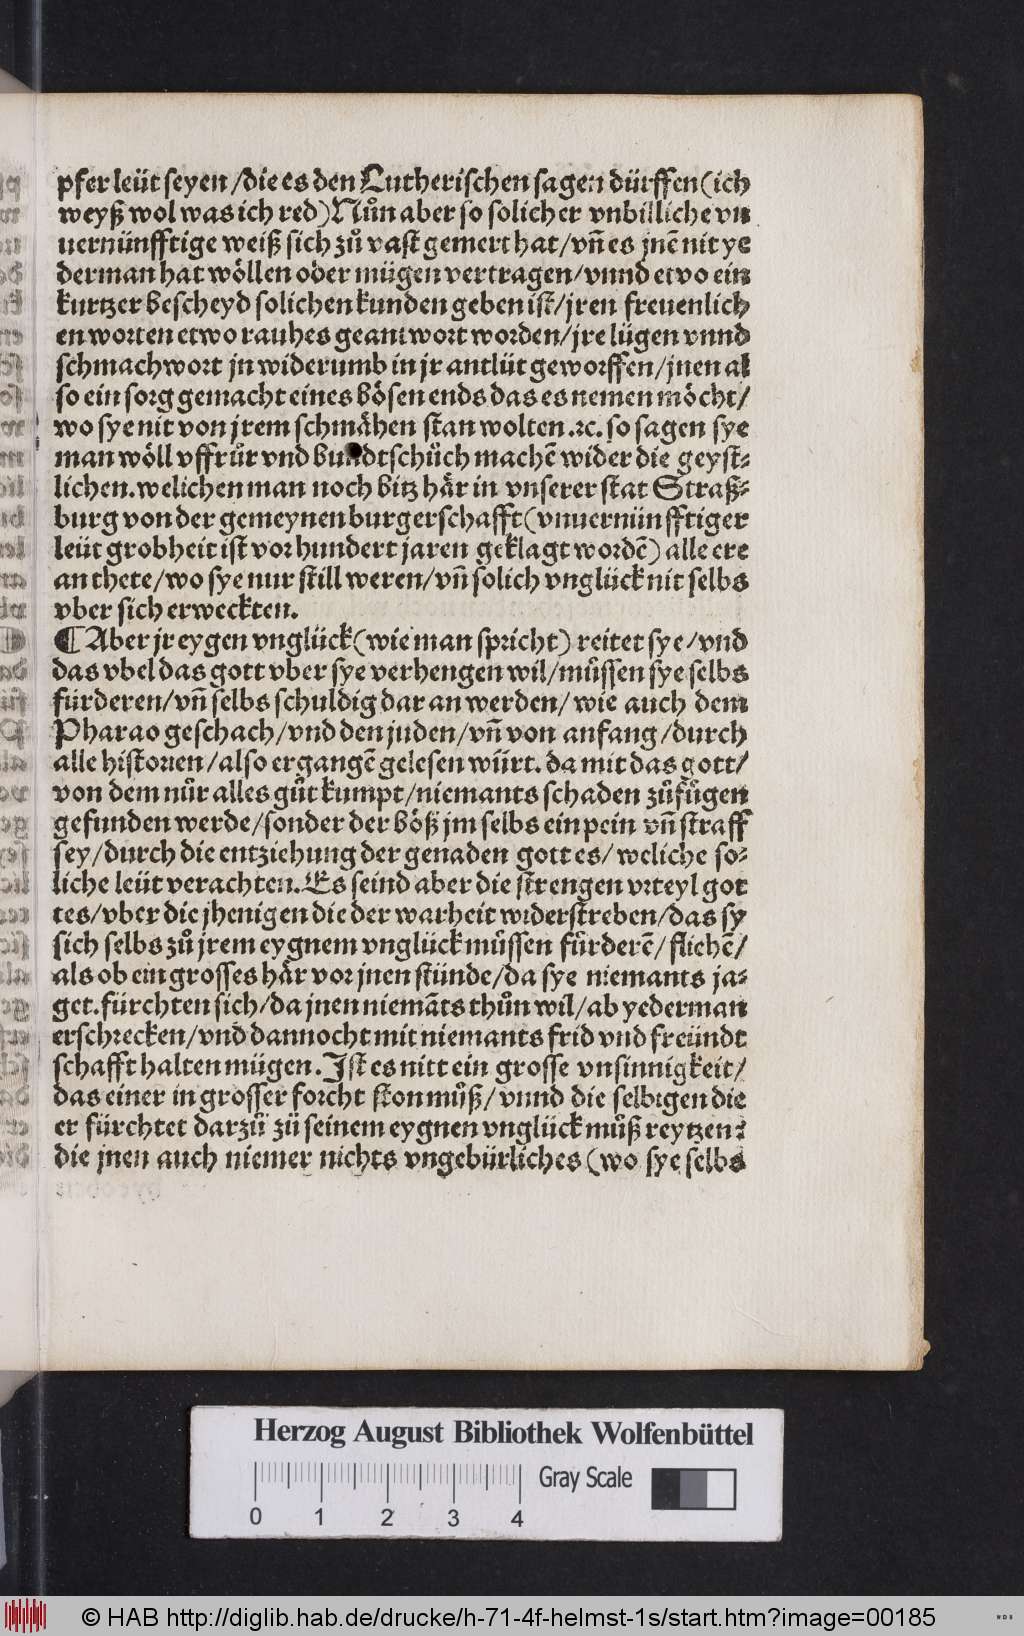 pfer leüt seyen /die es den Lutherischen sagen dürffen (ich
weyß wol was ich red) Nůn aber so solicher vnbilliche vn
uernünfftige weiß sich zů vast gemert hat/vñ es jnē nit ye
derman hat wöllen ober mügen vertragen/vnnd etwo ein
kurtzer bescheyd solichen kunden geben ist/jren freuenlich
en worten etwo rauhes geantwort worden/jre lügen vnnd
schmachwort jn widerumb in jr antlüt geworffen/jnen al
so ein sorg gemacht eines bösen ends das es nemen möcht/
wo sye nit von jrem schmåhen stan wolten .ꝛc. so sagen sye
man wöll vffrůr vnd bundtschůch machē wider die geyst⸗
lichen. welichen man noch bitz hår in vnserer stat Straß⸗
burg von der gemeynen burgerschafft (vnuernünfftiger
leüt grobheit ist vor hundert jaren geklagt wordē) alle ere
an thete/wo sye nur still weren/vñ solich vnglück nit selbs
vber sich erweckten.
¶ Aber jr eygen vnglück (wie man spricht) reitet sye/vnd
das vbel das gott vber sye verhengen wil/můssen sye selbs
fürderen/vñ selbs schuldig dar an werden/ wie auch dem
Pharao geschach/vnd den juden/vñ von anfang/durch
alle historien/also ergangē gelesen würt. da mit das gott/
von dem nůr alles gůt kumpt/niemants schaden zůfůgen
gefunden werde/sonder der böß jm selbs ein pein vñ straff
sey/durch die entziehung der genaden gottes/ weliche so⸗
liche leüt verachten. Es seind aber die strengen vrteyl got
tes/vber die jhenigen die der warheit widerstreben/das sy
sich selbs zů jrem eygnem vnglück můssen fůrderē/fliehē/
als ob ein grosses hår vor jnen stünde/da sye niemants ja⸗
get. fürchten sich/da jnen niemāts thůn wil/ab yederman
erschrecken/vnd dannocht mit niemants frid vnd freündt
schafft halten mügen. Ist es nitt ein grosse vnsinnigkeit/
das einer in grosser forcht ston můß/ vnnd die selbigen die
er fürchtet darzů zü seinem eygnen vnglück můß reytzen?
die jnen auch niemer nichts vngebürliches (wo sye selbs
Herzog August Bibliothek Wolfenbüttel
Gray Scale
0 1 2 3 4
© HAB http://diglib.hab.de/drucke/h-71-4f-helmst-1s/start.htm?image=00185